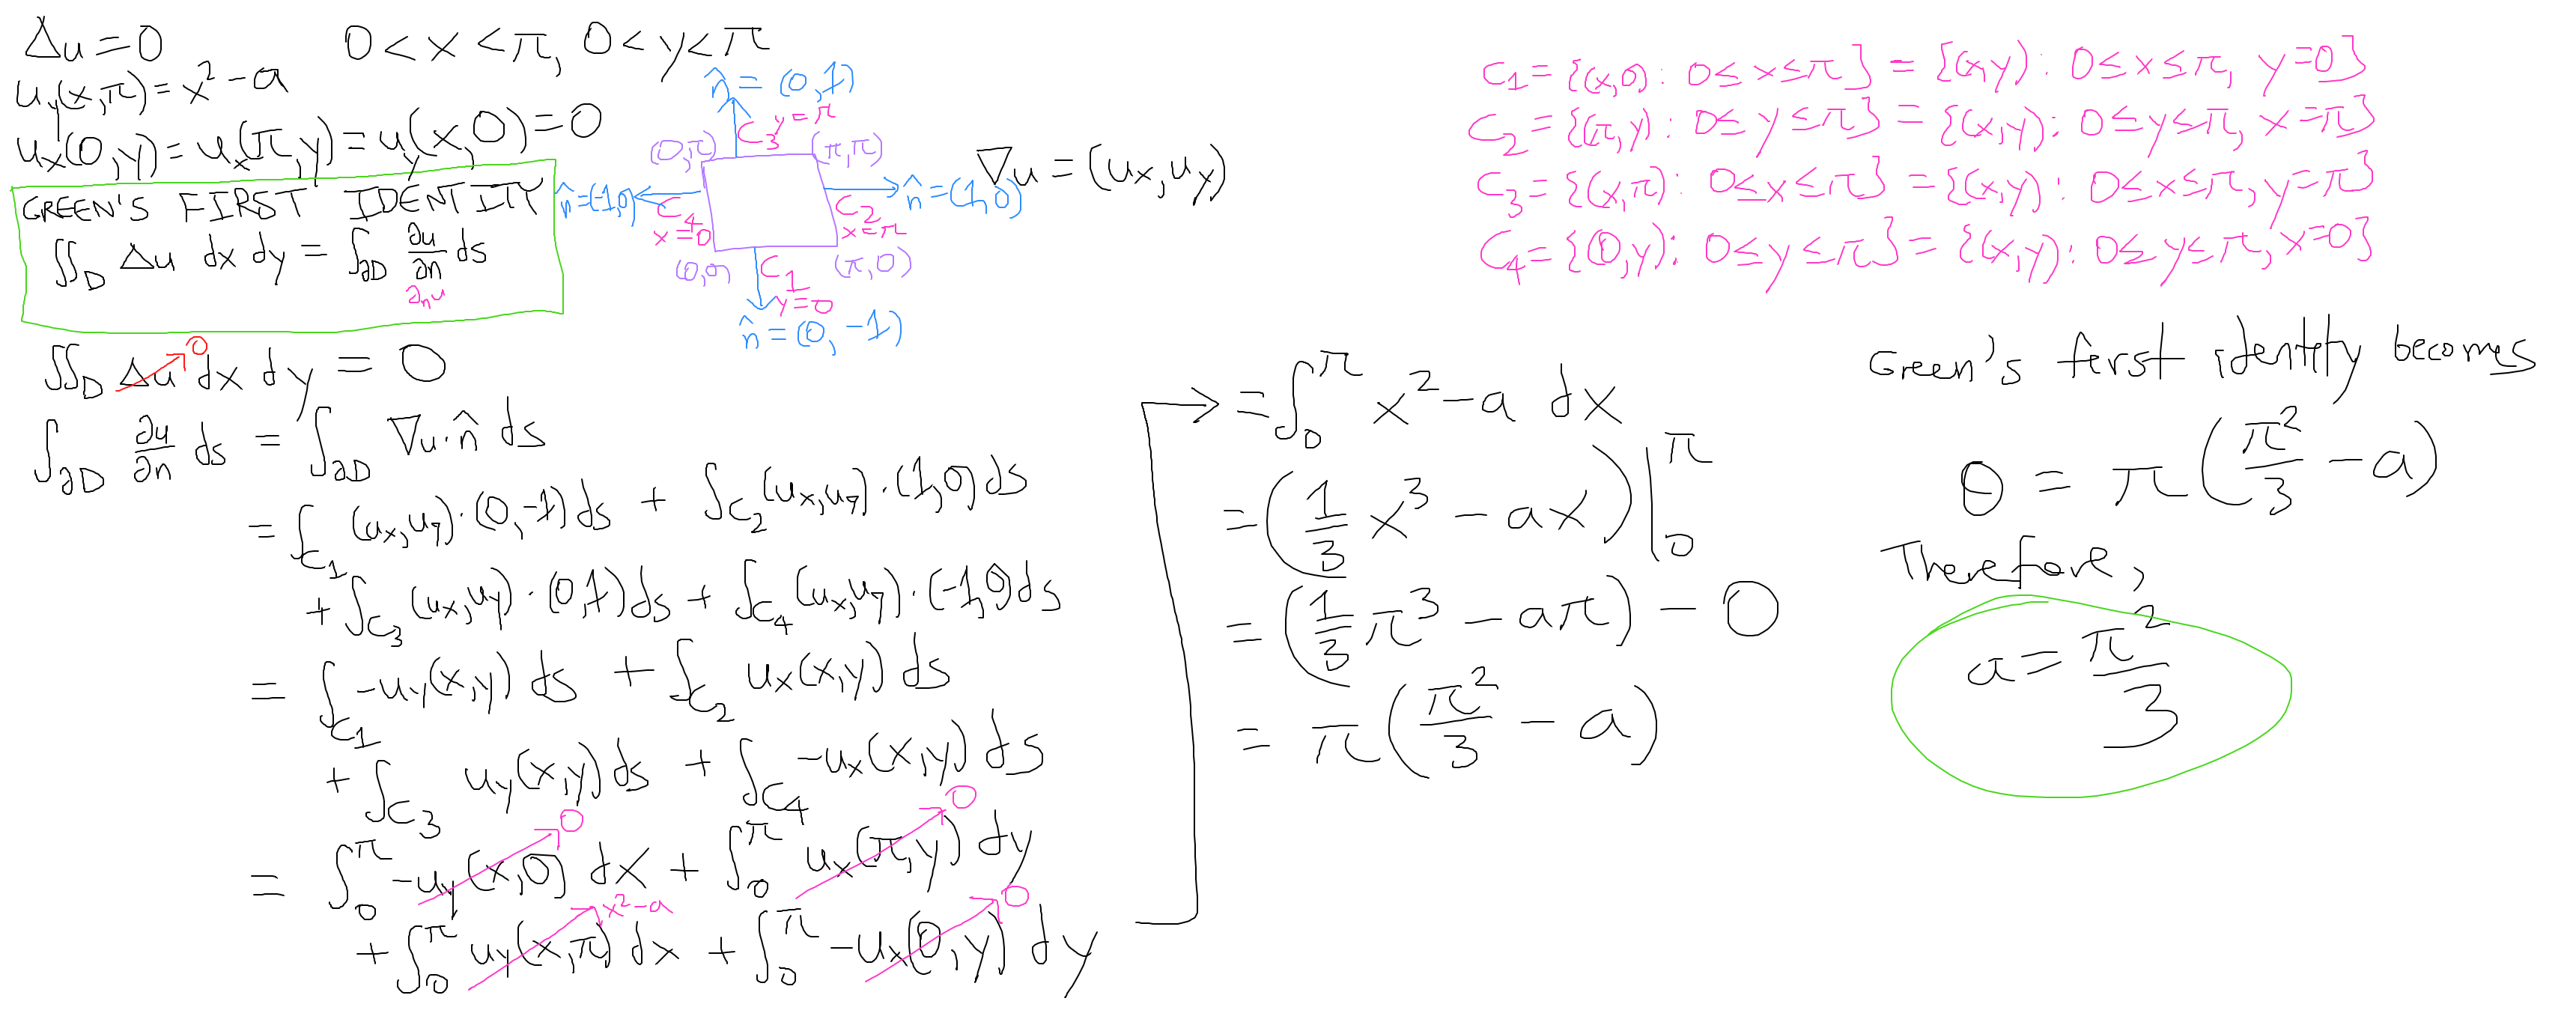 Δu=0    0<x<π, 0<y<π
u_y(x,π)=x²-a
u_x(0,y)=u_x(π,y)=u_y(x,0)=0
GREEN'S FIRST IDENTITY
∬_D Δu dx dy = ∫_∂D ∂u/∂n ds
∂_n u
n̂=(0,1)
C₃ y=π
(0,π)
(π,π)
n̂=(-1,0)
C₄
x=0
C₂
x=π
n̂=(1,0)
(0,0)
(π,0)
C₁
y=0
n̂=(0,-1)
∇u=(u_x,u_y)
C₁={(x,0): 0≤x≤π}={(x,y): 0≤x≤π, y=0}
C₂={(π,y): 0≤y≤π}={(x,y): 0≤y≤π, x=π}
C₃={(x,π): 0≤x≤π}={(x,y): 0≤x≤π, y=π}
C₄={(0,y): 0≤y≤π}={(x,y): 0≤y≤π, x=0}
∬_D Δu dx dy = 0
0
∫_∂D ∂u/∂n ds = ∫_∂D ∇u·n̂ ds
= ∫_C₁ (u_x,u_y)·(0,-1)ds + ∫_C₂ (u_x,u_y)·(1,0)ds
+ ∫_C₃ (u_x,u_y)·(0,1)ds + ∫_C₄ (u_x,u_y)·(-1,0)ds
= ∫_C₁ -u_y(x,y) ds + ∫_C₂ u_x(x,y) ds
+ ∫_C₃ u_y(x,y)ds + ∫_C₄ -u_x(x,y) ds
0 0
= ∫_0^π -u_y(x,0) dx + ∫_0^π u_x(π,y) dy
x²-a 0
+ ∫_0^π u_y(x,π) dx + ∫_0^π -u_x(0,y) dy
= ∫_0^π x²-a dx
= (1/3 x³ - ax)|_0^π
= (1/3 π³ - aπ) - 0
= π(π²/3 - a)
Green's first identity becomes
0 = π(π²/3 - a)
Therefore,
a = π²/3